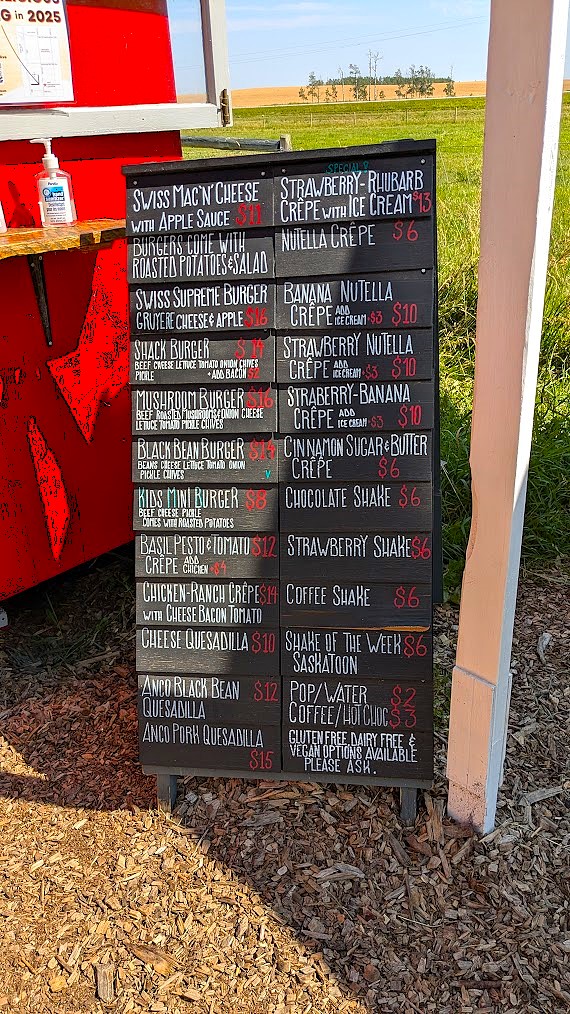 G in 2025
Purell
SWISS MAC'N'CHEESE
WITH APPLE SAUCE
BURGERS COME WITH
ROASTED POTATOES & SALAD
SWISS SUPREME BURGER
GRUYERE CHEESE & APPLE $16
SHACK BURGER $14
BEEF CHEESE LETTUCE TOMATO ONION CHIVES
PICKLE • ADD BACON
MUSHROOM BURGER $16
BEEF ROASTED MUSHROOMS & ONION CHEESE
LETTUCE TOMATO PICKLE CHIVES
BLACK BEAN BURGER $14
BEANS CHEESE LETTUCE TOMATO ONION
PICKLE CHIVES V
KIDS MINI BURGER $8
BEEF CHEESE PICKLE
COMES WITH ROASTED POTATOES
BASIL PESTO & TOMATO $12
CRÊPE ADD CHICKEN +$4
CHICKEN-RANCH CRÊPE $14
WITH CHEESE BACON TOMATO
CHEESE QUESADILLA $10
ANCO BLACK BEAN $12
QUESADILLA
ANCO PORK QUESADILLA
$15
SPECIAL
STRAWBERRY-RHUBARB
CRÊPE WITH ICE CREAM $13
NUTELLA CRÊPE $6
BANANA NUTELLA
CRÊPE ADD ICE CREAM +$3 $10
STRAWBERRY NUTELLA
CRÊPE ADD ICE CREAM +$3 $10
STRABERRY-BANANA
CRÊPE ADD ICE CREAM +$3 $10
CINNAMON SUGAR & BUTTER
CRÊPE $6
CHOCOLATE SHAKE $6
STRAWBERRY SHAKE $6
COFFEE SHAKE $6
SHAKE OF THE WEEK $6
SASKATOON
POP/WATER $2
COFFEE/HOT CHOC $3
GLUTEN FREE, DAIRY FREE &
VEGAN OPTIONS AVAILABLE
PLEASE ASK.